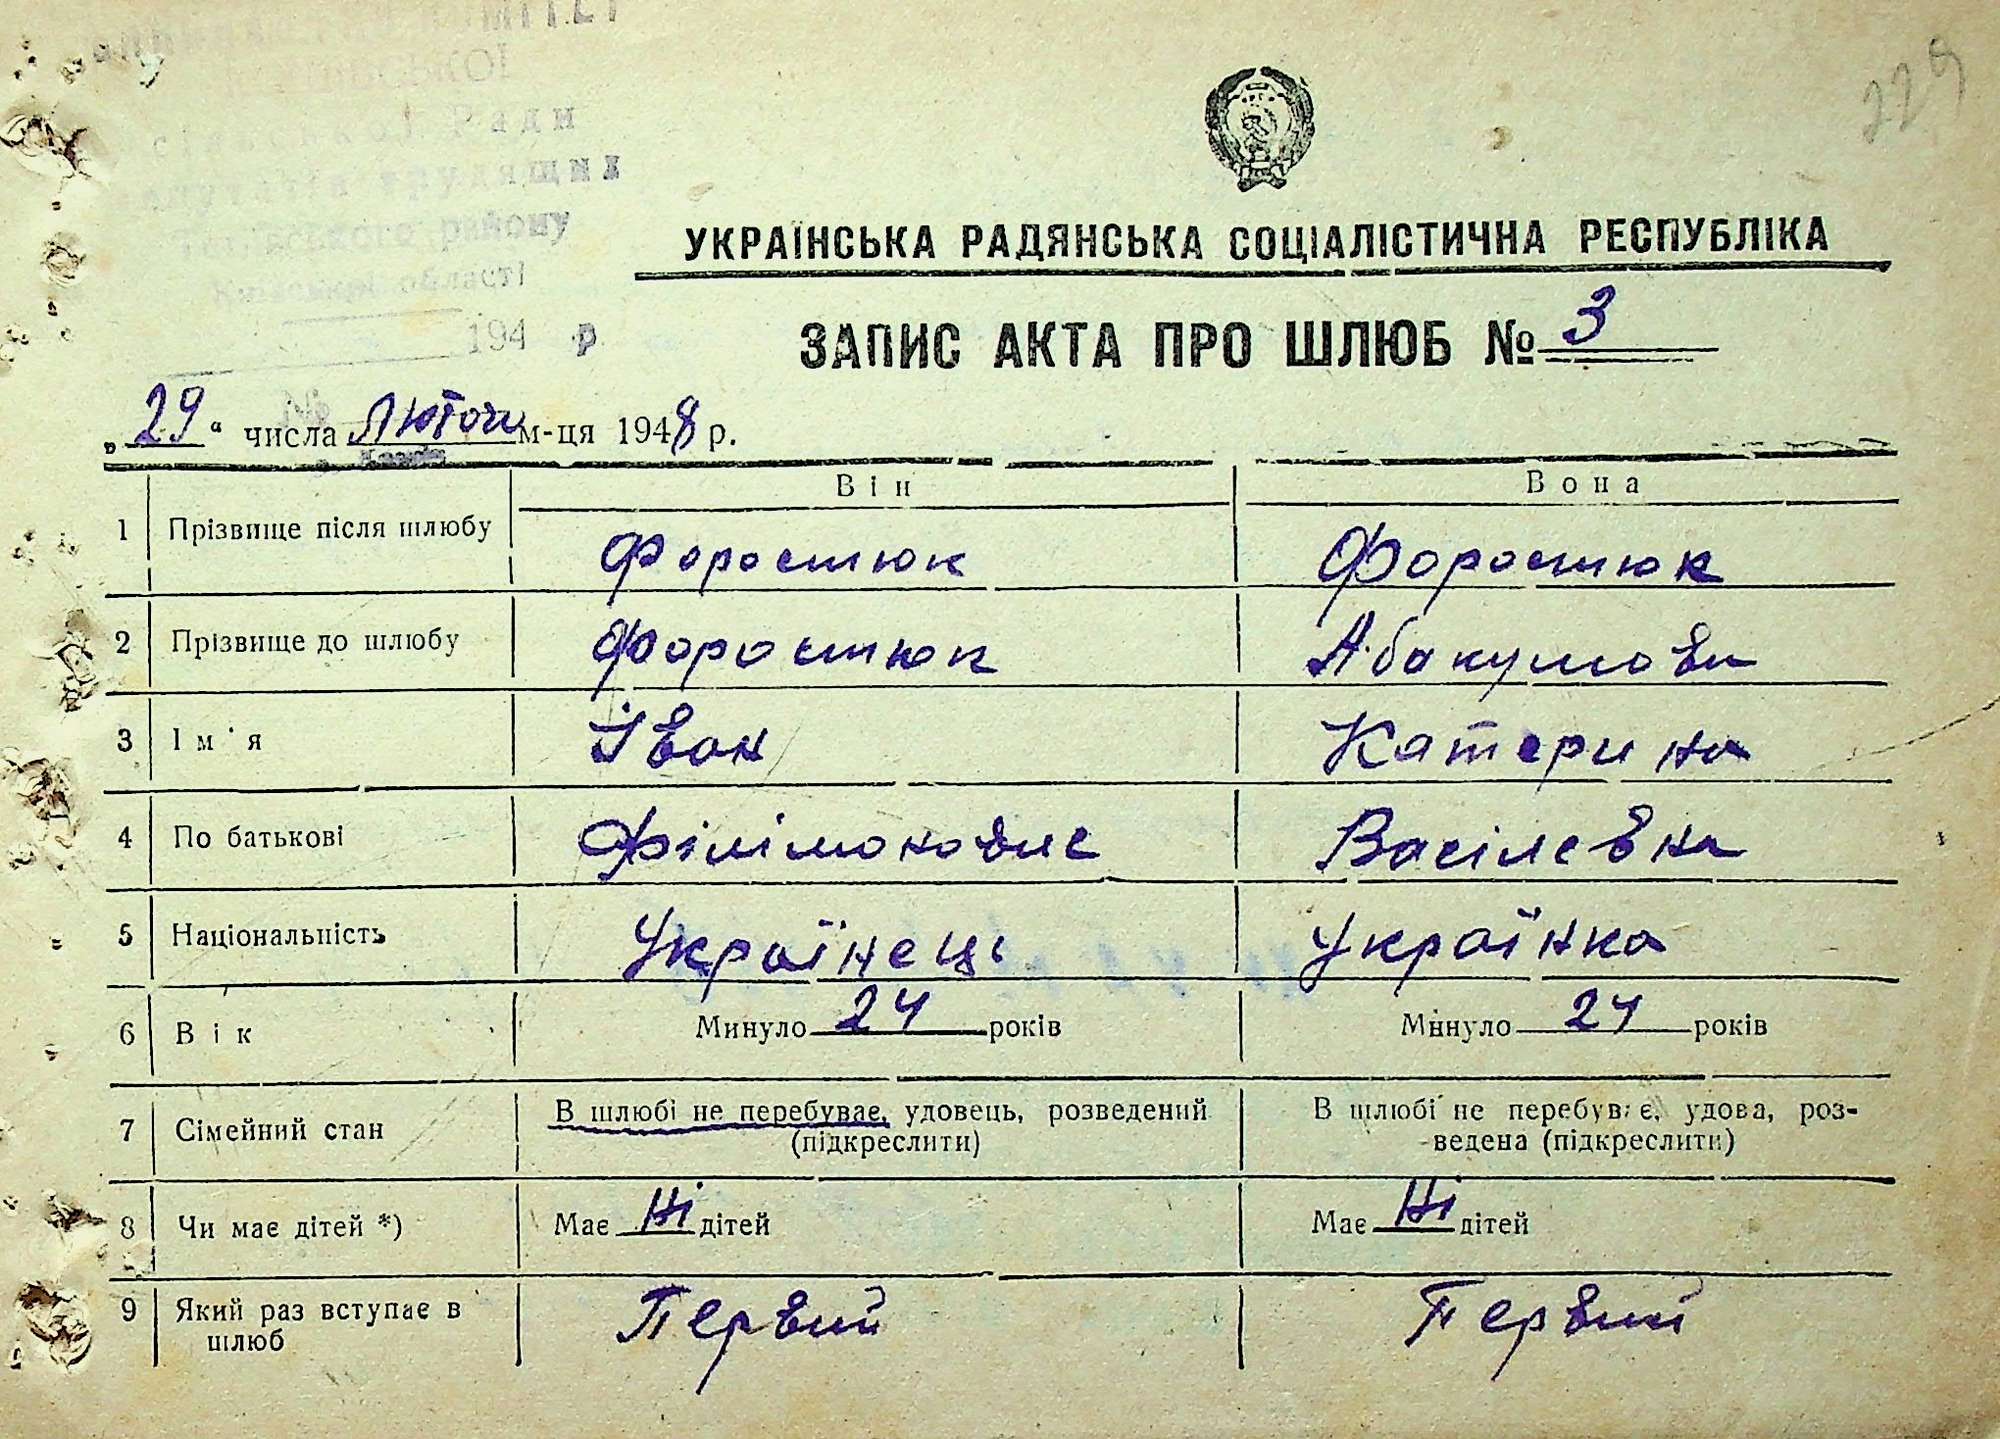 229
сільської Ради
депутатів трудящих
району
Київської області
194 р.
УКРАЇНСЬКА РАДЯНСЬКА СОЦІАЛІСТИЧНА РЕСПУБЛІКА
ЗАПИС АКТА ПРО ШЛЮБ № 3
„29“ числа Лютого м-ця 1948 р.
Він Вона
1 Прізвище після шлюбу Форостюк Форостюк
2 Прізвище до шлюбу Форостюк Абакумова
3 Ім'я Іван Катерина
4 По батькові Філімонович Васілевна
5 Національність Українець Українка
6 Вік Минуло 24 років Минуло 24 років
7 Сімейний стан В шлюбі не перебуває, удовець, розведений (підкреслити) В шлюбі не перебуває, удова, роз-
ведена (підкреслити)
8 Чи має дітей *) Має Ні дітей Має Ні дітей
9 Який раз вступає в шлюб Первий Первий